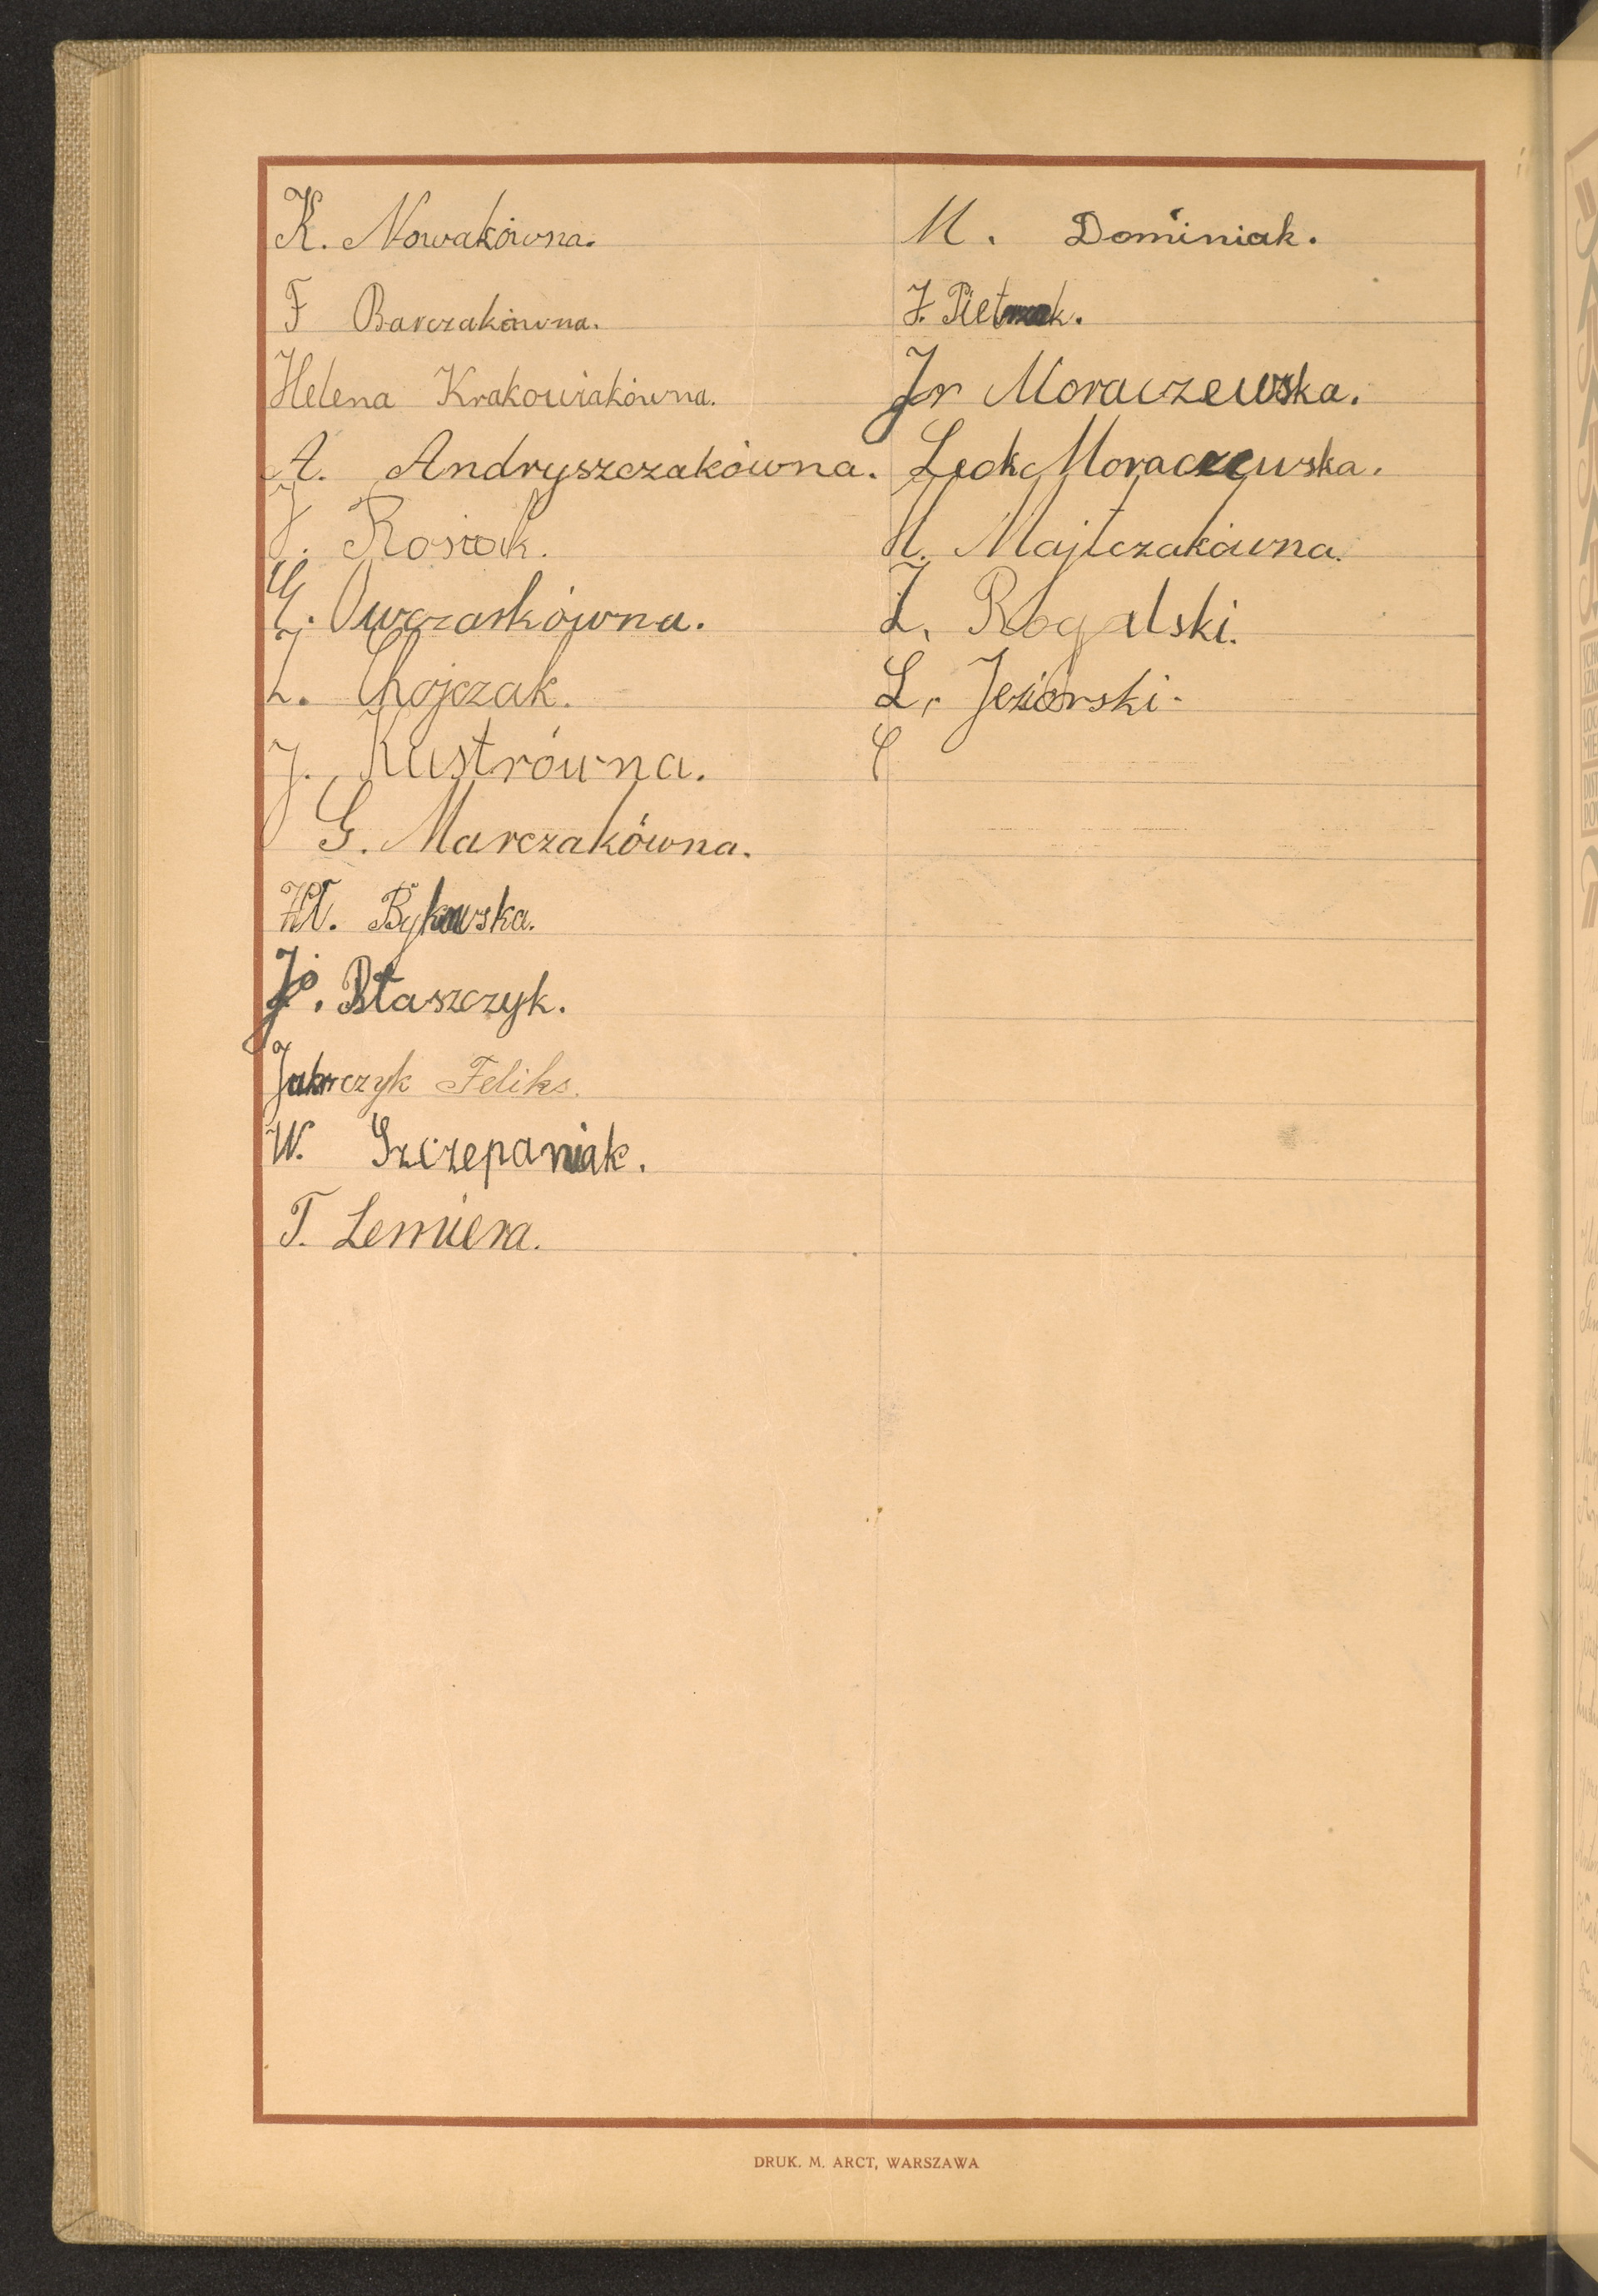 K. Nowakówna.
F Barczakówna.
Helena Krakowiakówna.
A. Andryszczakówna.
J. Rosiak.
E. Owczarkówna.
Z. Chojczak.
J. Kustrówna.
G. Marczakówna.
Wł. Bykowska.
Jó. Błaszczyk.
Feliks.
W. Szczepaniak.
T. Lemiera.
M. Dominiak.
J. Pietrzak.
Ir Moraczewska.
Leok Moraczewska.
M. Majtczakówna.
Z. Rogalski.
L. Jeziorski.
DRUK. M. ARCT, WARSZAWA